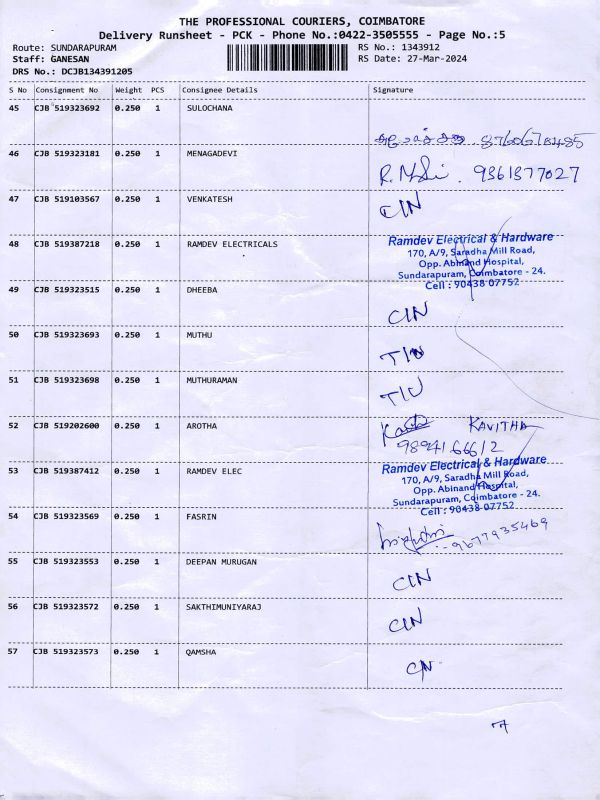 THE PROFESSIONAL COURIERS, COIMBATORE
Delivery Runsheet - PCK - Phone No.:0422-3505555 - Page No.:5
Route: SUNDARAPURAM RS No.: 1343912
Staff: GANESAN RS Date: 27-Mar-2024
DRS No.: DCJB134391205
S No Consignment No Weight PCS Consignee Details Signature
45 CJB 519323692 0.250 1 SULOCHANA
46 CJB 519323181 0.250 1 MENAGADEVI
R. 9361377027
47 CJB 519103567 0.250 1 VENKATESH CIN
48 CJB 519387218 0.250 1 RAMDEV ELECTRICALS
Ramdev Electrical & Hardware
170, A/9, Saradha Mill Road,
Opp. Abinand Hospital,
Sundarapuram, Coimbatore - 24.
Cell : 90438 07752
49 CJB 519323515 0.250 1 DHEEBA
CIN
50 CJB 519323693 0.250 1 MUTHU
TIN
51 CJB 519323698 0.250 1 MUTHURAMAN
TIN
52 CJB 519202600 0.250 1 AROTHA
KAVITHA
9894166612
53 CJB 519387412 0.250 1 RAMDEV ELEC
Ramdev Electrical & Hardware
170, A/9, Saradha Mill Road,
Opp. Abinand Hospital,
Sundarapuram, Coimbatore - 24.
Cell : 90438 07752
54 CJB 519323569 0.250 1 FASRIN
9677935469
55 CJB 519323553 0.250 1 DEEPAN MURUGAN
CIN
56 CJB 519323572 0.250 1 SAKTHIMUNIYARAJ
CIN
57 CJB 519323573 0.250 1 QAMSHA
CIN